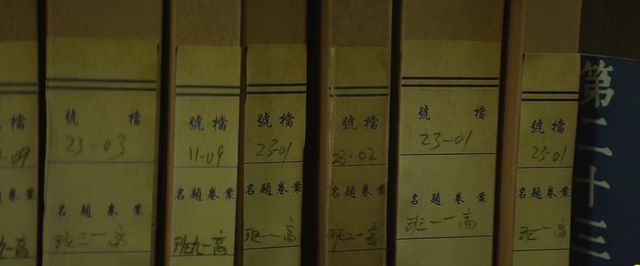 檔
-09
案卷
高一九
檔號
23-03
案卷題名
高一三班
檔號
11-09
案卷題名
高一九班
檔號
23-01
案卷題名
高一一班
檔號
23-02
案卷題名
高一二班
檔號
23-01
案卷題名
高一一班
檔號
23-01
案卷題名
高一一班
第二十三